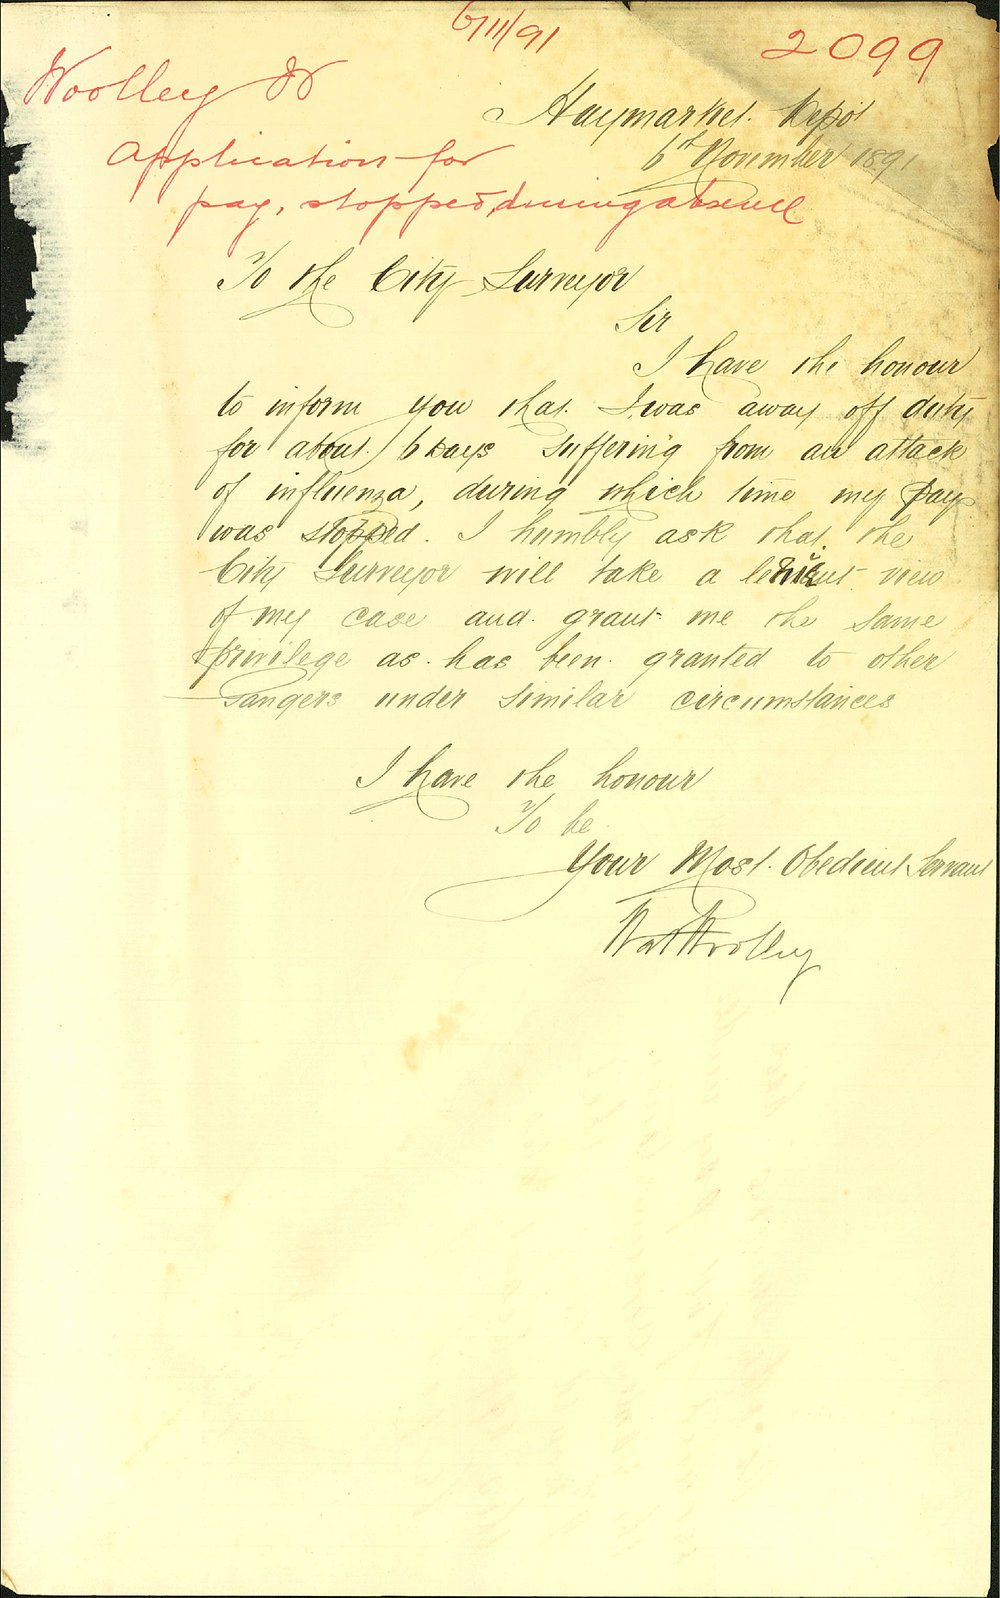 6/11/91
2099
Woolley W
Application for
pay, stopped, during absence
Haymarket Depôt
6th November 1891
To the City Surveyor
Sir
I have the honour
to inform you that I was away off duty
for about 6 days suffering from an attack
of influenza, during which time my pay
was stopped. I humbly ask that the
City Surveyor will take a lenient view
of my case and grant me the same
privilege as has been granted to other
Gangers under similar circumstances
I have the honour
To be
Your Most Obedient Servant
Wat Woolley